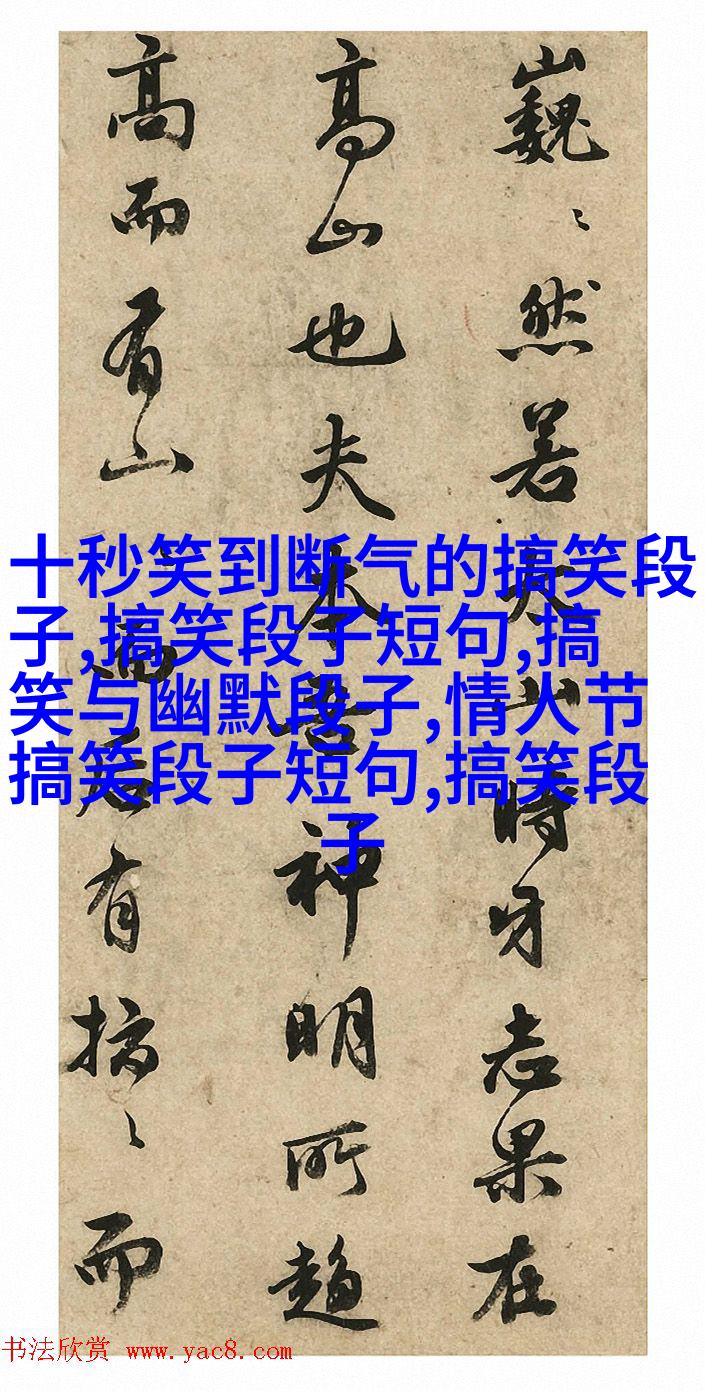 十秒笑到断气的搞笑段
子,搞笑段子短句,搞
笑与幽默段子,情人节
搞笑段子短句,搞笑段
子
巍〻然若太山時牙志果在
高山也夫本神明所趋
高而有山有而
书法欣赏 www.yac8.com